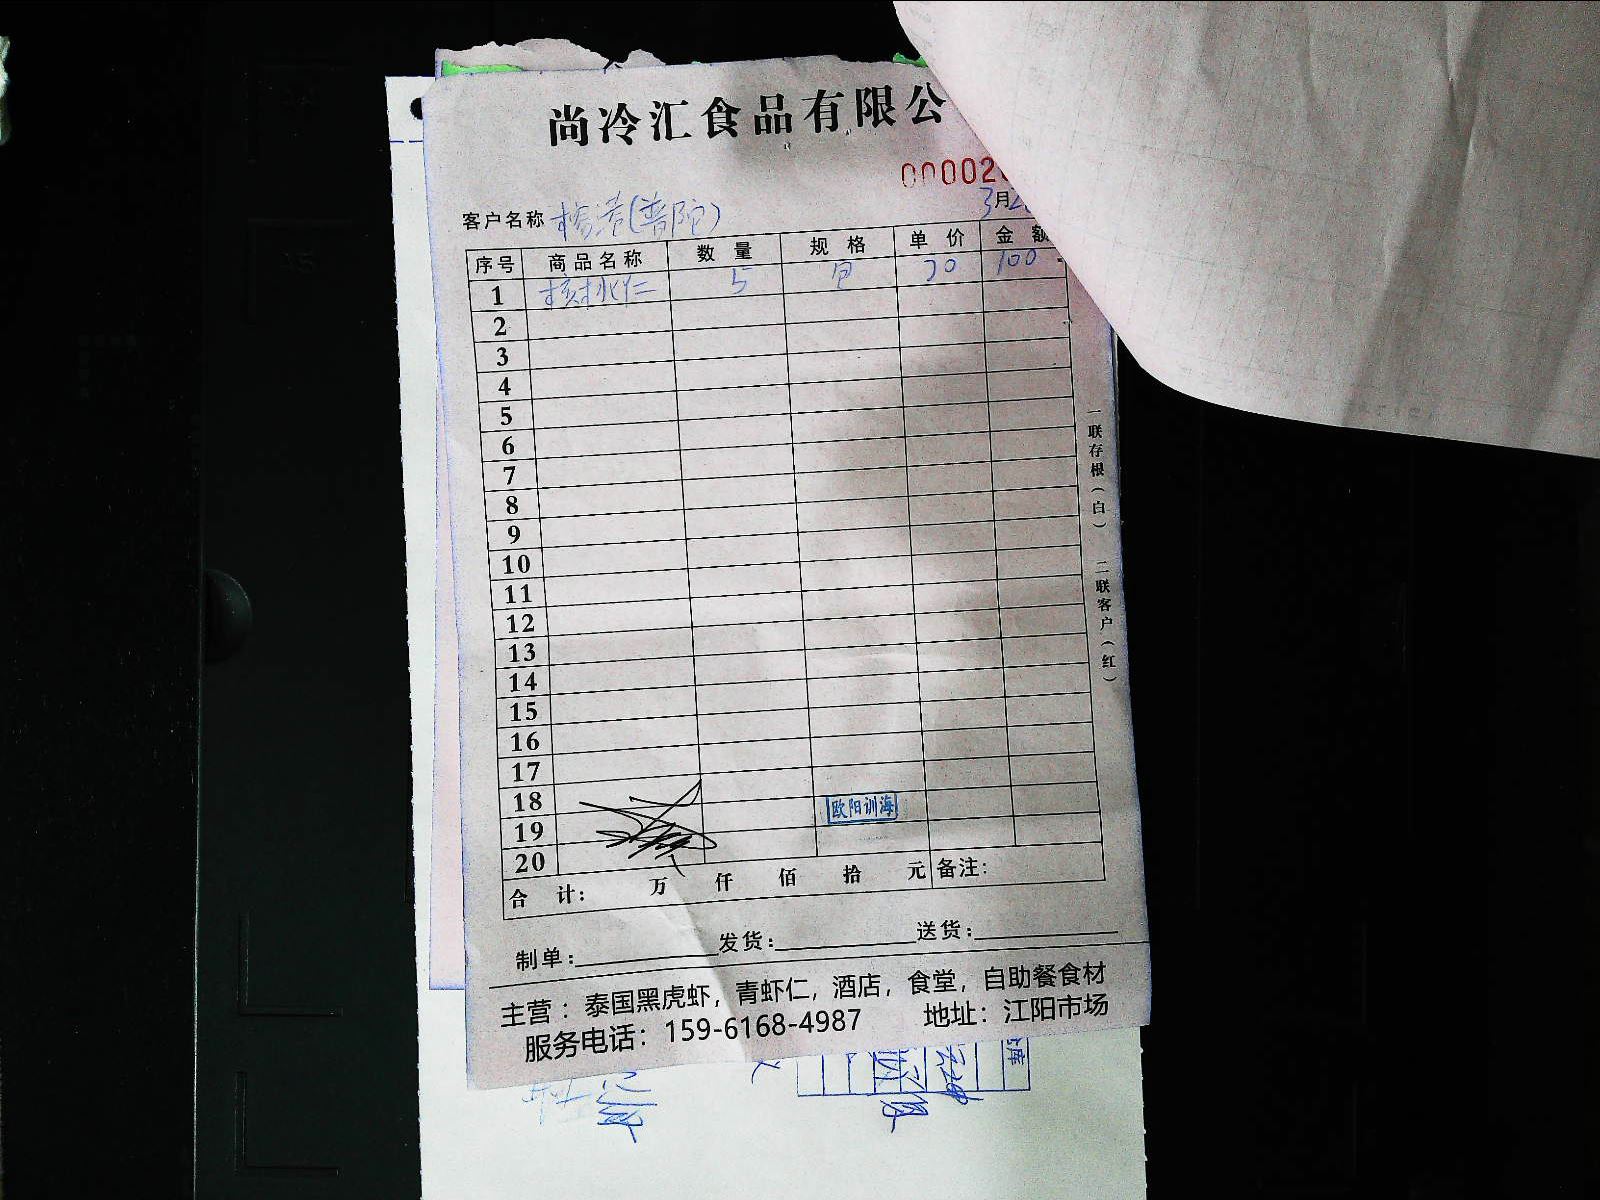 尚冷汇食品有限公
00002
3月2
客户名称 杨港(普陀)
序号 商品名称 数量 规格 单价 金额
1 核桃仁 5 包 20 100
2
3
4
5
6
7
8
9
10
11
12
13
14
15
16
17
18 欧阳训海
19
20
合计： 万 仟 佰 拾 元 备注：
制单： 发货： 送货：
主营：泰国黑虎虾，青虾仁，酒店，食堂，自助餐食材
服务电话：159-6168-4987 地址：江阳市场
一联存根（白） 二联客户（红）